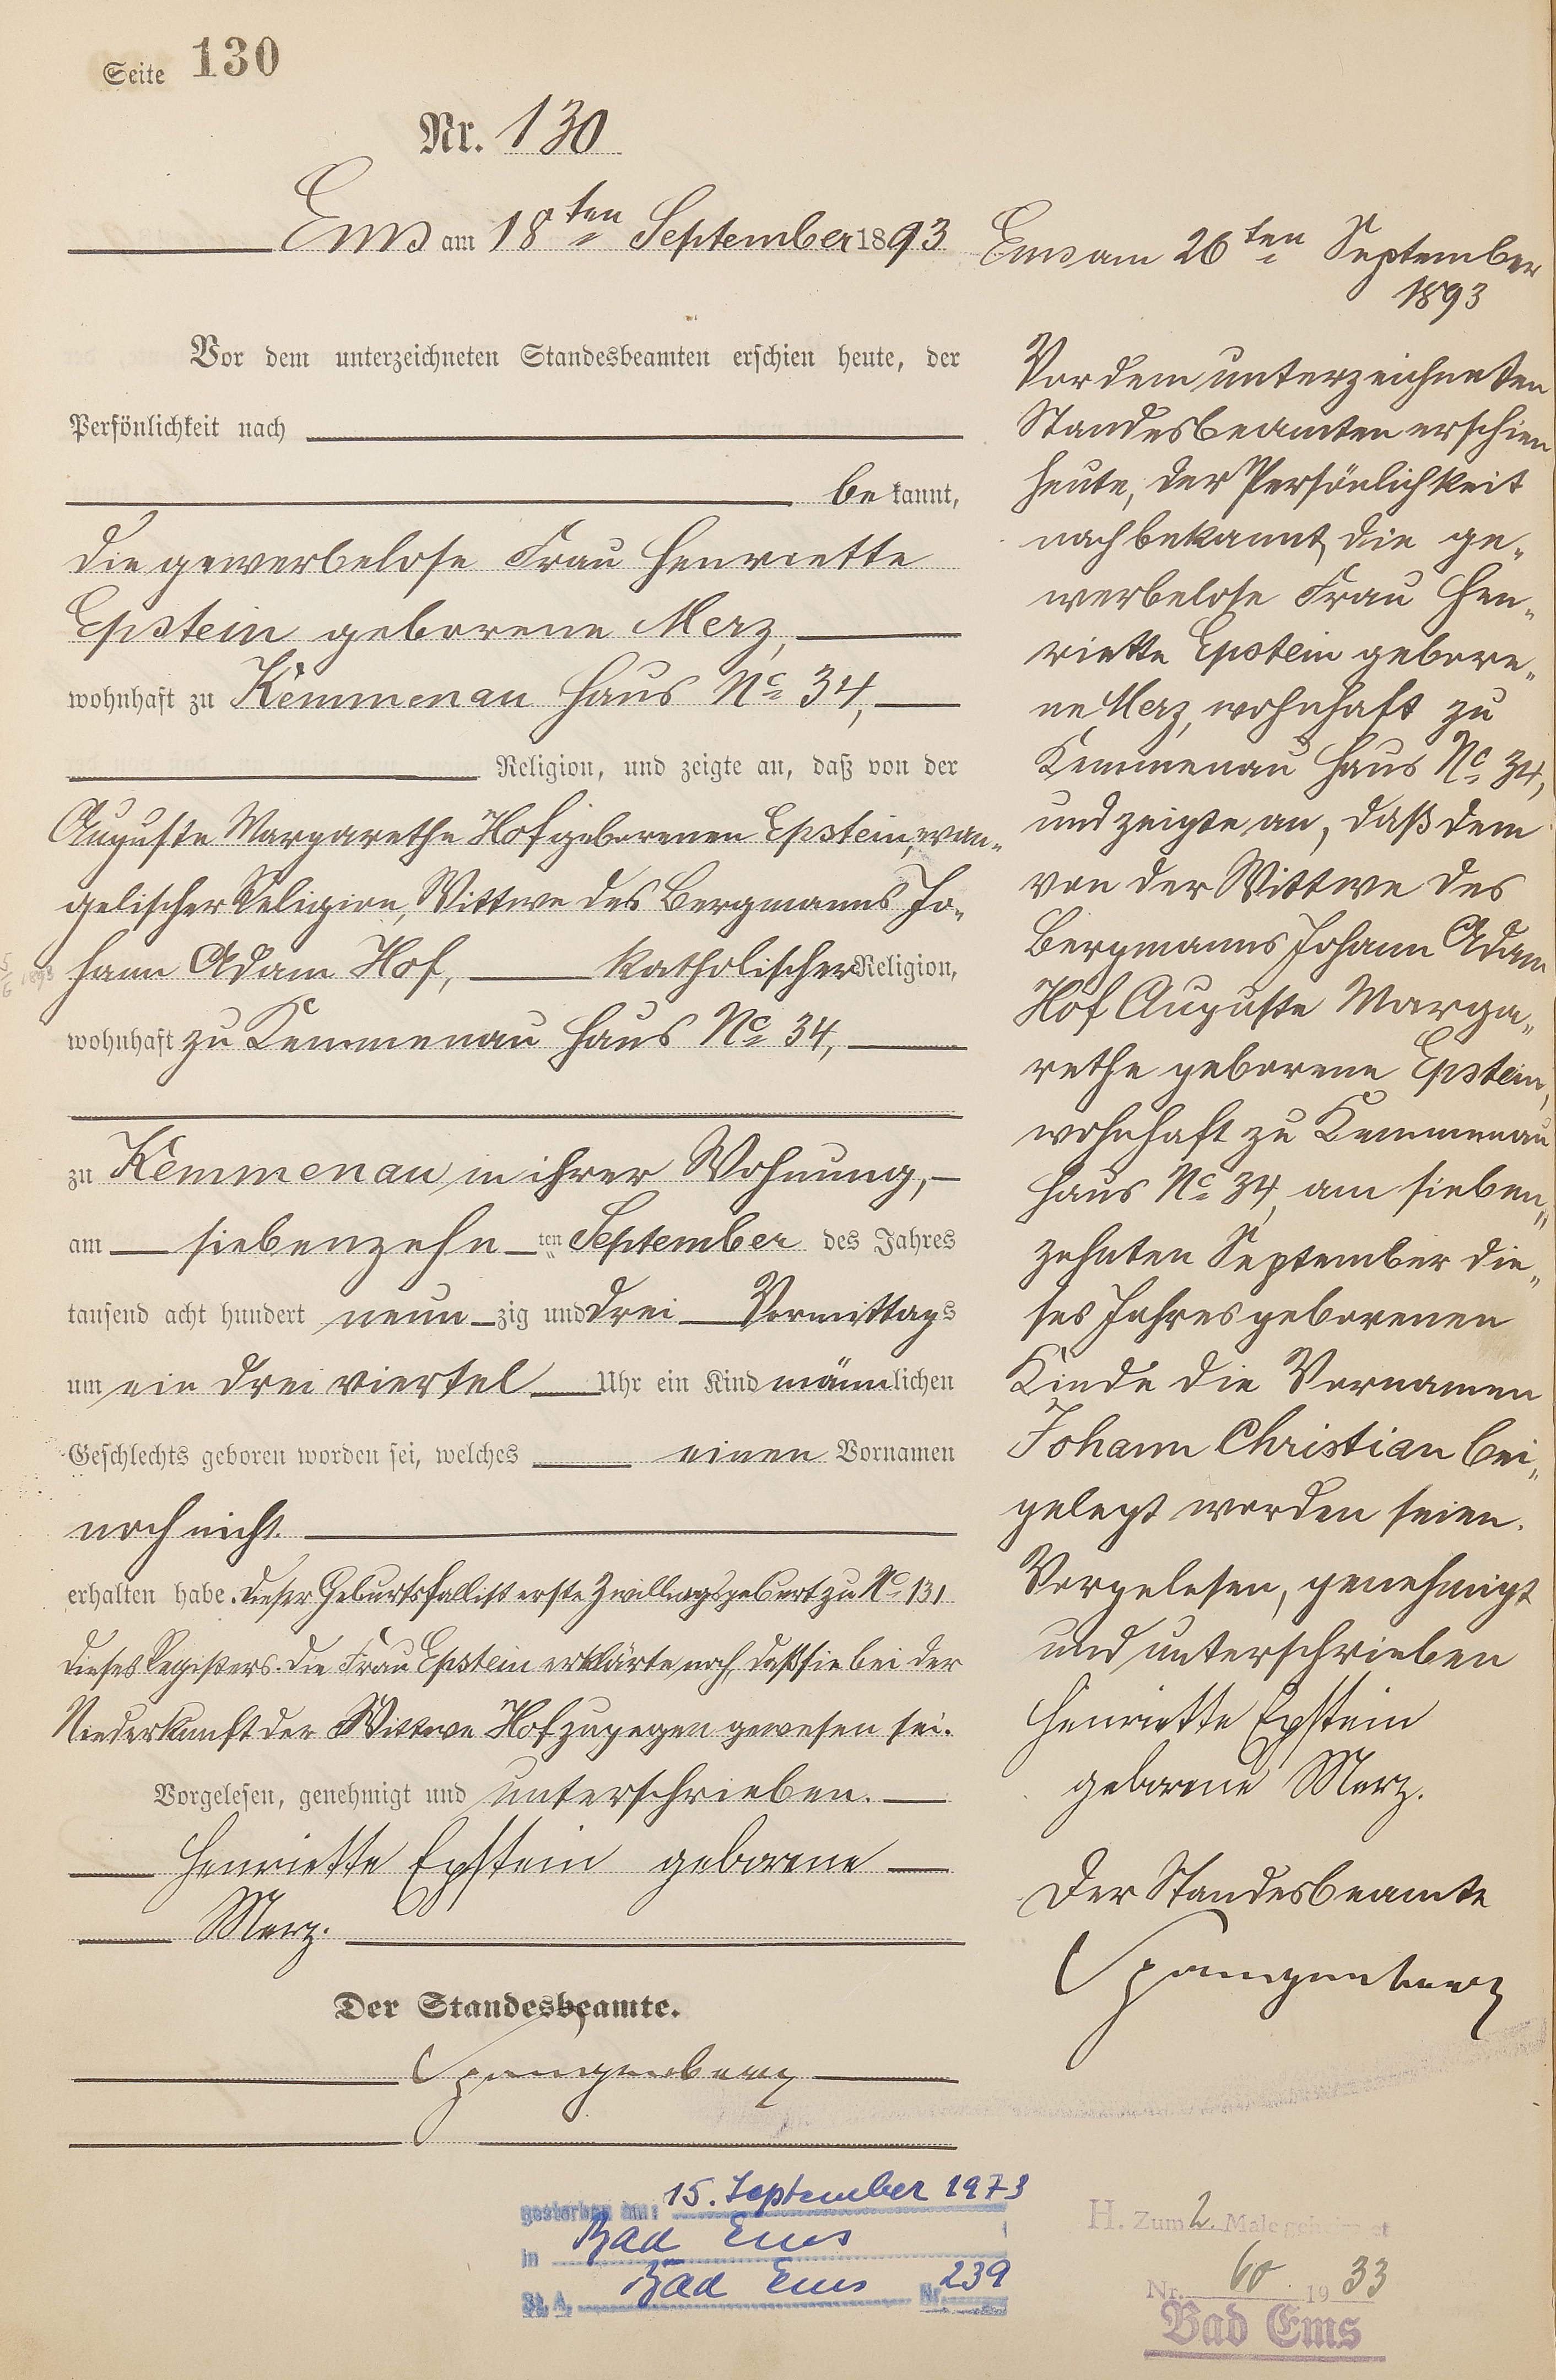 Seite 130
Nr. 130
Ems am 18ten September 1893
Vor dem unterzeichneten Standesbeamten erschien heute, der
Persönlichkeit nach
bekannt,
die gewerbelose Frau Henriette
Epstein geborene Merz,
wohnhaft zu Kemmenau Haus No 34,
Religion, und zeigte an, daß von der
Auguste Margarethe Hof geborenen Epstein, evan-
gelischer Religion, Wittwe des Bergmanns Jo-
hann Adam Hof, katholischer Religion,
wohnhaft zu Kemmenau Haus No 34,
zu Kemmenau in ihrer Wohnung,
am siebenzehn ten September des Jahres
tausend acht hundert neunzig und drei Vormittags
um ein drei viertel Uhr ein Kind männlichen
Geschlechts geboren worden sei, welches einen Vornamen
noch nicht
erhalten habe. Dieser Geburtsfall ist erste Zwillingsgeburt zu No 131
dieses Registers. Die Frau Epstein erklärte noch, daß sie bei der
Niederkunft der Wittwe Hof zugegen gewesen sei.
Vorgelesen, genehmigt und unterschrieben.
Henriette Epstein geborene
Merz.
Der Standesbeamte.
Spangenberg
Ems am 26ten September
1893
Vor dem unterzeichneten
Standesbeamten erschien
heute, der Persönlichkeit
nach bekannt, die ge-
werbelose Frau Hen-
riette Epstein gebore-
ne Merz, wohnhaft zu
Kemmenau Haus No 34,
und zeigte an, daß dem
von der Wittwe des
Bergmanns Johann Adam
Hof Auguste Marga-
rethe geborene Epstein,
wohnhaft zu Kemmenau
Haus No 34, am sieben-
zehnten September die-
ses Jahres geborenen
Kinde die Vornamen
Johann Christian bei-
gelegt worden seien.
Vorgelesen, genehmigt
und unterschrieben
Henriette Epstein
geborene Merz.
Der Standesbeamte
Spangenberg
gestorben am: 15. September 1973
in Bad Ems
St. A. Bad Ems Nr. 239
H. Zum 2. Male geheiratet
Nr. 60 1933
Bad Ems